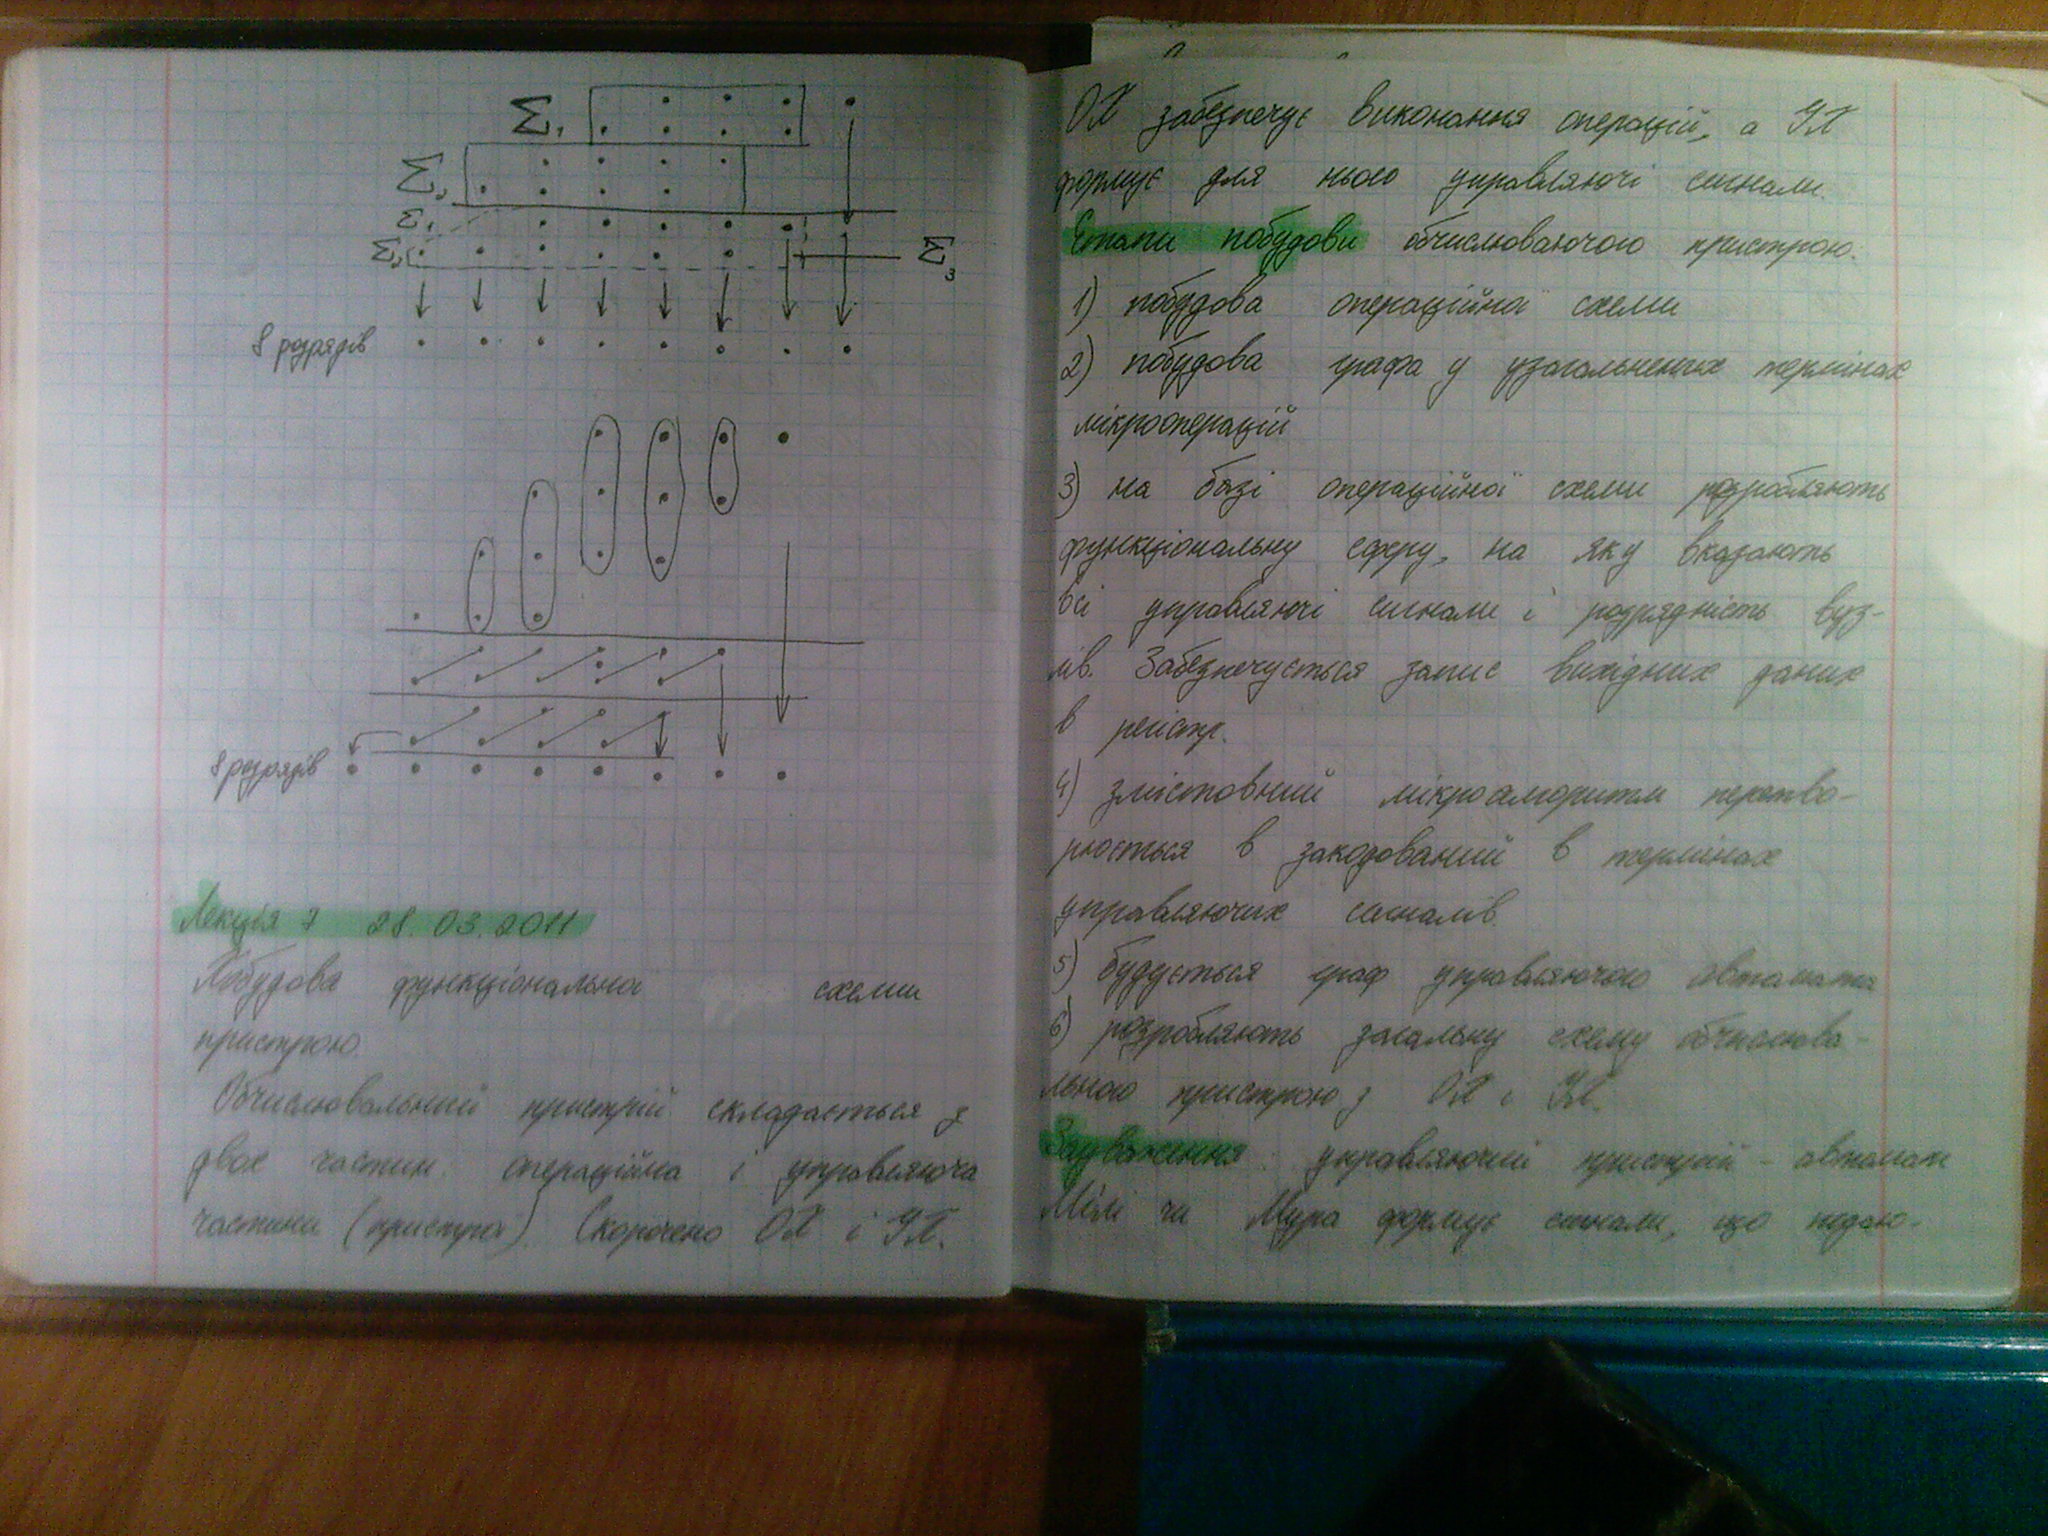 Σ₁
Σ₂
Σ₁
Σ₂
Σ₃
8 розрядів
8 розрядів
Лекція 7 28.03.2011
Побудова функціональна схеми
пристрою.
Обчислювальний пристрій складається з
двох частин. операційна і управляюча
частини (пристрої). Скорочено ОП і УП.
ОП забезпечує виконання операцій, а УП
формує для нього управляючі сигнали.
Етапи побудови обчислюваючого пристрою.
1) побудова операційної схеми
2) побудова графа у узагальнених термінах
мікрооперацій
3) на базі операційної схеми розробляють
функціональну сферу, на яку вказають
всі управляючі сигнали і розрядність вуз-
лів. Забезпечується запис вихідних даних
в регістр.
4) змістовний мікроалгоритм перетво-
рюється в закодований в термінах
управляючих сигналів.
5) будується граф управляючого автомата
6) розробляють загальну схему обчислюва-
льного пристрою з ОП і УП.
Зауваження управляючий пристрій - автомат
Мілі чи Мура формує сигнали, що подаю-